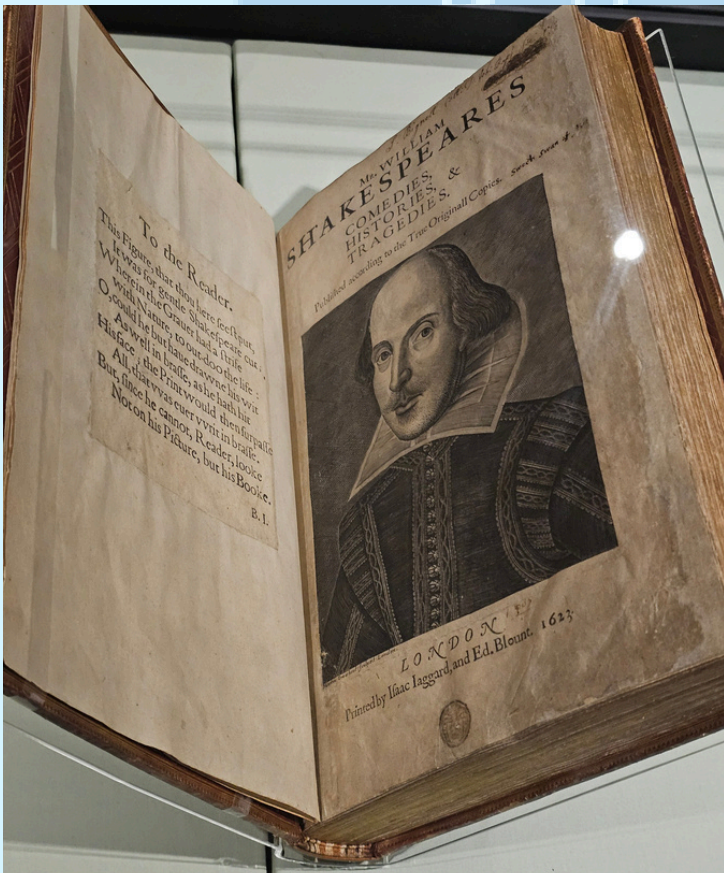 To the Reader.
This Figure, that thou here seeſt put,
It was for gentle Shakeſpeare cut;
Wherein the Grauer had a ſtrife
with Nature, to out-doo the life:
O, could he but haue drawne his wit
As well in braſſe, as he hath hit
His face; the Print would then ſurpaſſe
All, that vvas euer vvrit in braſſe.
But, ſince he cannot, Reader, looke
Not on his Picture, but his Booke.
B. I.
Mr. WILLIAM
SHAKESPEARES
COMEDIES,
HISTORIES, &
TRAGEDIES.
Published according to the True Originall Copies.
LONDON
Printed by Iſaac Iaggard, and Ed. Blount. 1623.